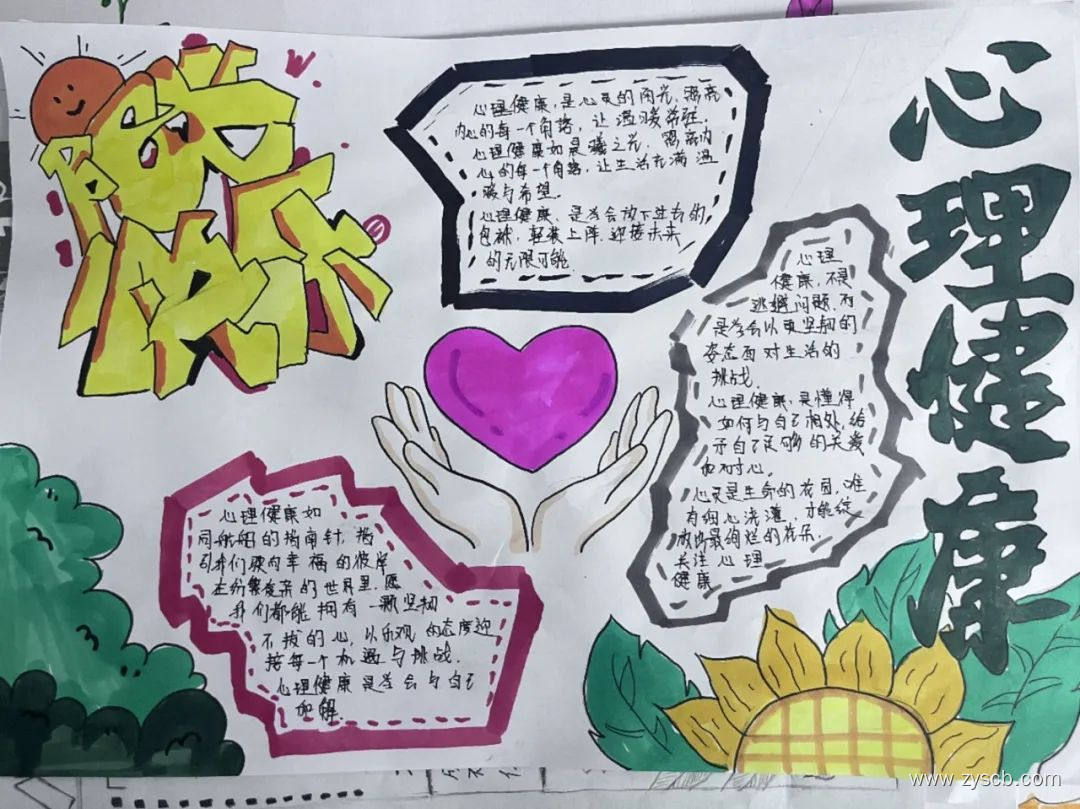 心理健康
心理健康,是心灵的阳光,照亮
内心的每一个角落,让温暖常驻.
心理健康如晨曦之光,照亮内
心的每一个角落,让生活充满温
暖与希望.
心理健康,是学会放下过去的
包袱,轻装上阵,迎接未来
的无限可能
心理
健康,不是
逃避问题,而
是学会以更坚韧的
姿态面对生活的
挑战.
心理健康,是懂得
如何与自己相处,给
予自己足够的关爱
和耐心.
心灵是生命的花园,唯
有细心浇灌,才能绽
放出最绚烂的花朵.
关注心理
健康
心理健康如
同航船的指南针,指
引我们驶向幸福的彼岸
在纷繁复杂的世界里,愿
我们都能拥有一颗坚韧
不拔的心,以乐观的态度迎
接每一个机遇与挑战.
心理健康是学会与自己
和解.
www.zyscb.com